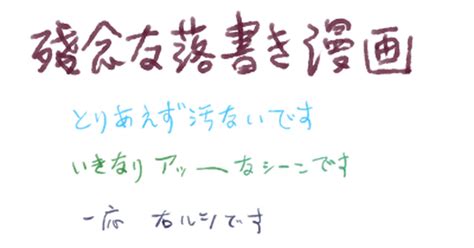 残念な落書き漫画
とりあえず汚ないです
いきなりアッーなシーンです
一応 右ルシです